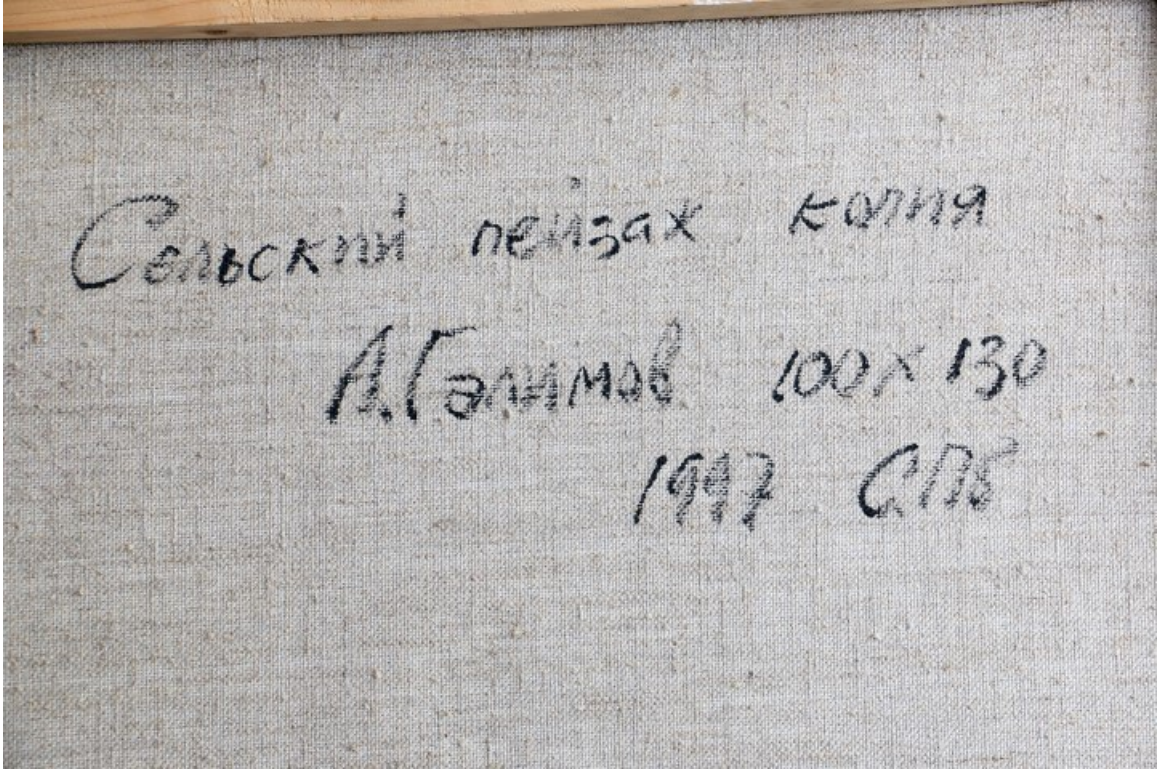 Сельский пейзаж копия
А.Галимов 100х130
1997 СПб